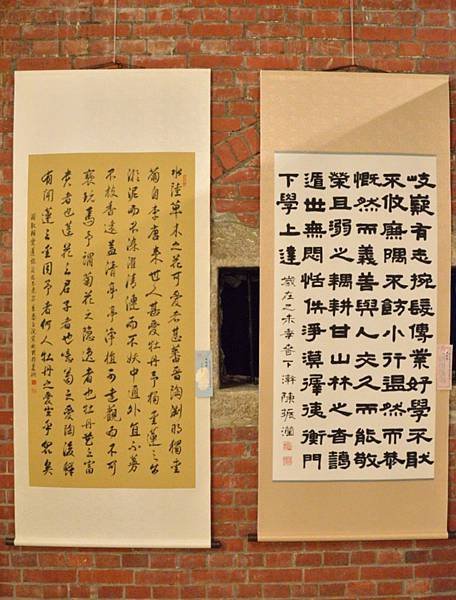 岐嶷有志捥髮傳業好學不猒
不攸廉隅不飭小行溫然而恭
慨然而義善與人交久而能敬
榮且溺之耦耕甘山林之杳藹
遁世無悶恬佚淨漠徲徥衡門
下學上達 歲在乙未 下澣陳振
水陸草木之花可愛者甚蕃晉陶淵明獨愛
菊自李唐來世人甚愛牡丹予獨愛蓮之出
淤泥而不染濯清漣而不妖中通外直不蔓
不枝香遠益清亭亭淨植可遠觀而不可
褻玩焉予謂菊花之隱逸者也牡丹花之富
貴者也蓮花之君子者也噫菊之愛陶後鮮
有聞蓮之愛同予者何人牡丹之愛宜乎眾矣